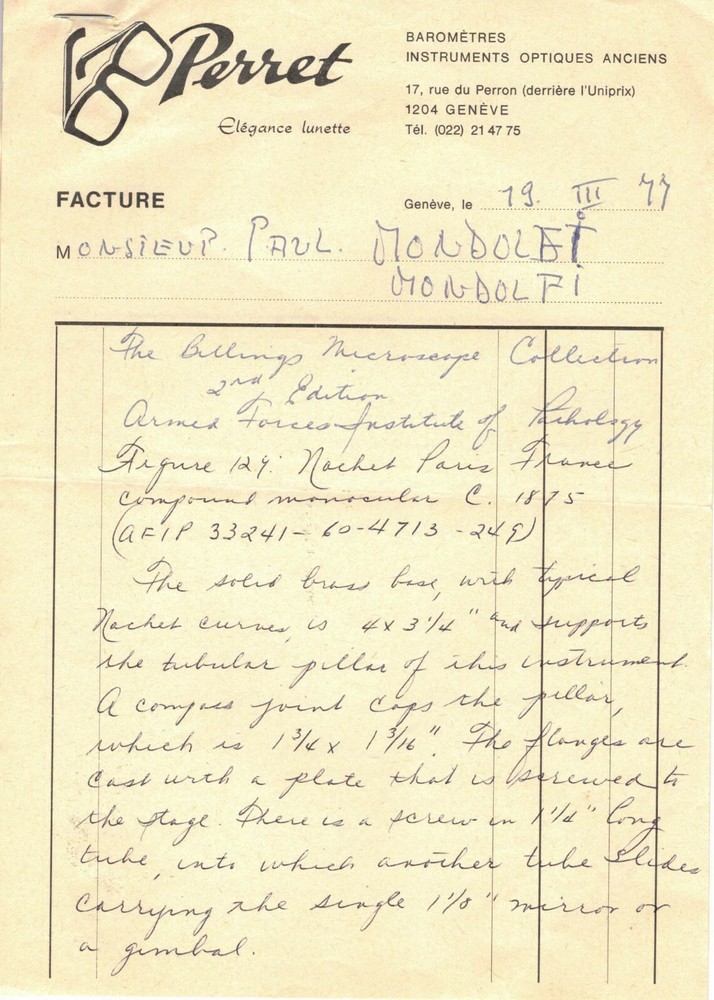 Perret
Elégance lunette
BAROMÈTRES
INSTRUMENTS OPTIQUES ANCIENS
17, rue du Perron (derrière l'Uniprix)
1204 GENÈVE
Tél. (022) 21 47 75
FACTURE
Genève, le 19. III 77
MONSIEUR. PAUL. MONDOLFI
MONDOLFI
The Billings Microscope Collection
2nd Edition
Armed Forces Institute of Pathology
Figure 129: Nachet Paris France
compound monocular C. 1875
(AFIP 33241 - 60-4713 - 249)
The solid brass base, with typical
Nachet curves, is 4 x 3 1/4" and supports
the tubular pillar of this instrument.
A compass joint caps the pillar,
which is 1 3/4 x 1 3/16". The flanges are
cast with a plate that is screwed to
the stage. There is a screw in 1 1/4" long
tube, into which another tube slides
carrying the single 1 1/8" mirror on
a gimbal.